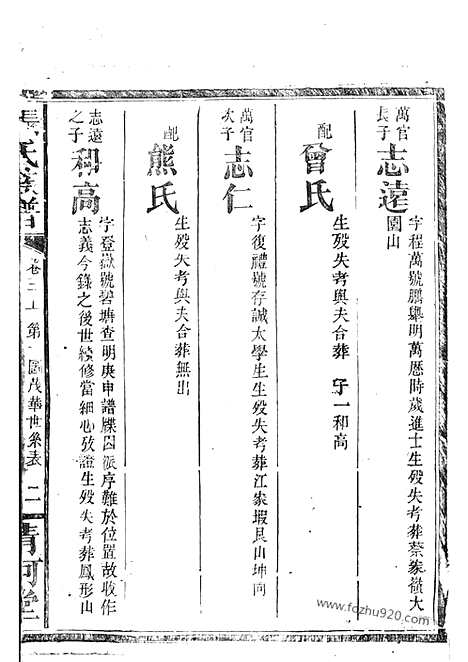 萬官長子 志遠 字程萬號鵬舉明萬歷時歲進士生殁失考葬蔡家嶺大園山
配 曾氏 生殁失考與夫合葬 子一和高
萬官次子 志仁 字復禮號存誠太學生生殁失考葬江家塅艮山坤向
配 熊氏 生殁失考與夫合葬無出
志遠之子 和高 字登嶽號碧塘查明庚申譜牒因派序難於位置故收作志義今錄之後世續修當細心攷證生殁失考葬鳳形山
氏族譜 卷二上 第 國茂華世系表 二 清河堂
www.fozhu920.com